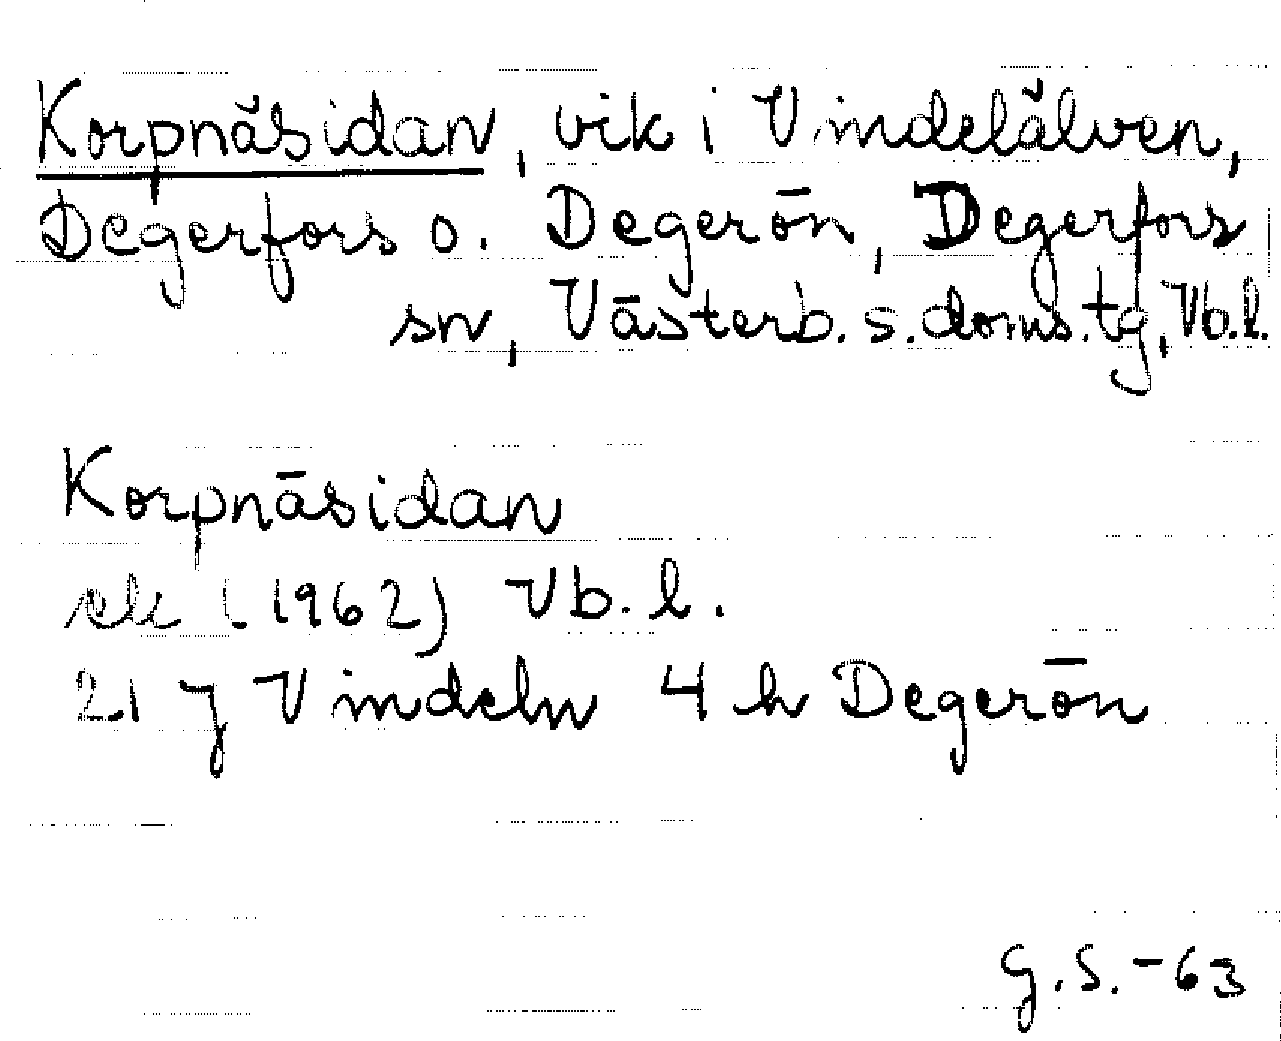 Korpnäsidan, vik i Vindelälven,
Degerfors o. Degerön, Degerfors
sn, Västerb. s. doms.tg, Vb.l.
Korpnäsidan
ek (1962) Vb. l.
21 J Vindeln 4 h Degerön
G.S. -63